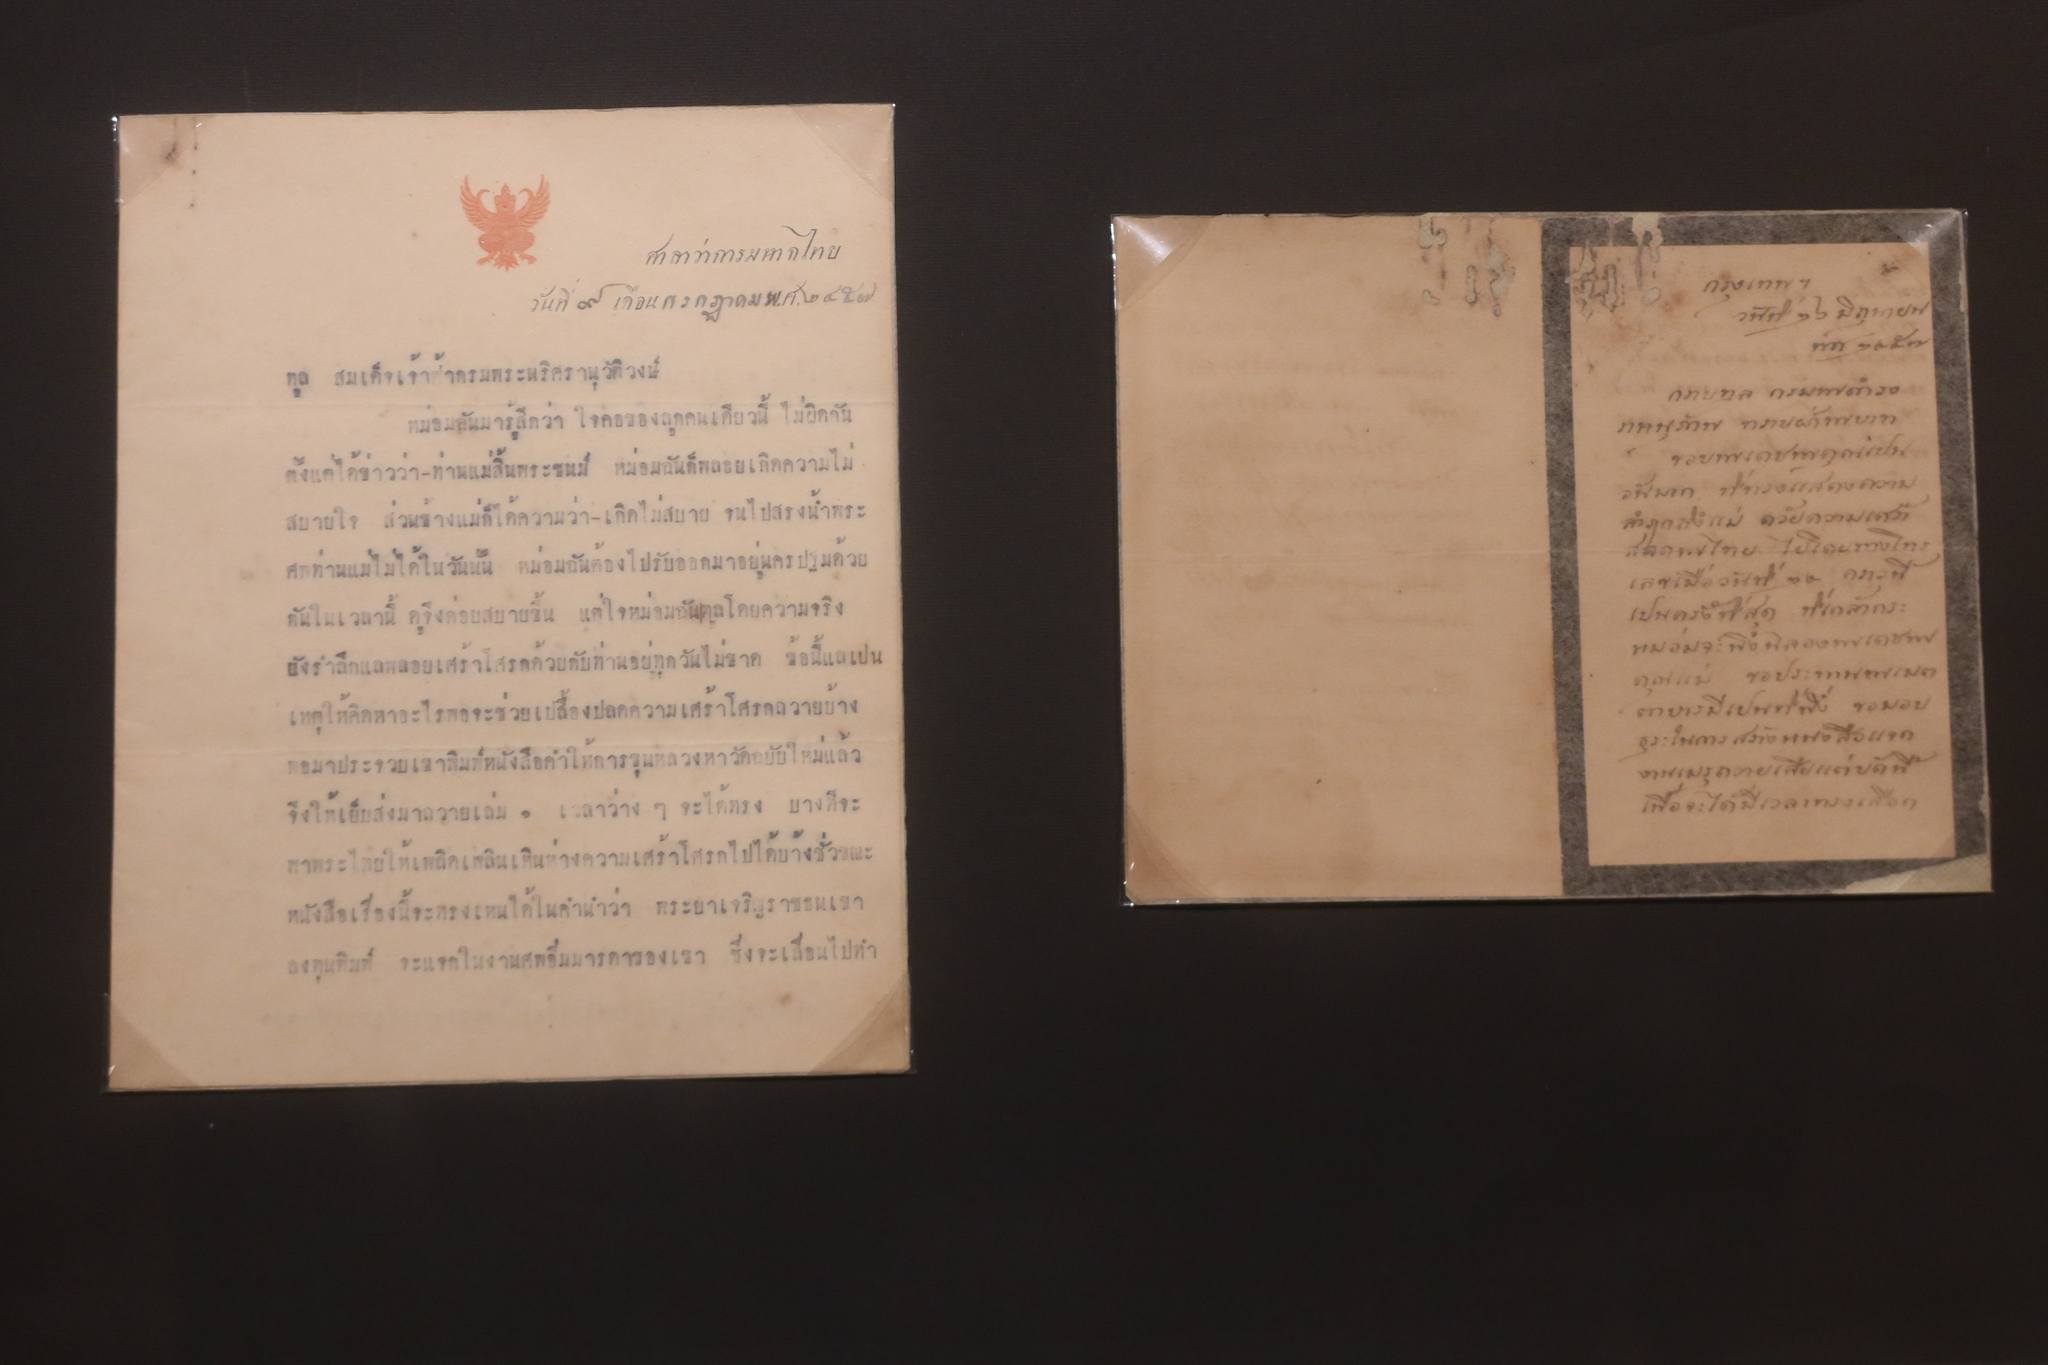 ศาลาว่าการมหาดไทย
วันที่ ๙ เดือนกรกฎาคม พ.ศ. ๒๔๕๗
ทูล สมเด็จเจ้าฟ้ากรมพระนริศรานุวัติวงษ์
หม่อมฉันมารู้สึกว่า ใจคอของลูกคนเดียวนี้ ไม่ผิดกัน
ตั้งแต่ได้ข่าวว่า-ท่านแม่สิ้นพระชนม์ หม่อมฉันก็พลอยเกิดความไม่
สบายใจ ส่วนข้างแม่ก็ได้ความว่า-เกิดไม่สบาย จนไปสรงน้ำพระ
ศพท่านแม่ไม่ได้ในวันนั้น หม่อมฉันต้องไปรับออกมาอยู่นครปฐมด้วย
กันในเวลานี้ ดูจึงค่อยสบายขึ้น แต่ใจหม่อมฉันทูลโดยความจริง
ยังรำลึกแลพลอยเศร้าโศรกด้วยกับท่านอยู่ทุกวันไม่ขาด ข้อนี้แลเปน
เหตุให้คิดหาอะไรพอจะช่วยเปลื้องปลดความเศร้าโศรกถวายบ้าง
พอมาประจวบเขาพิมพ์หนังสือคำให้การขุนหลวงหาวัดฉบับใหม่แล้ว
จึงให้เย็บส่งมาถวายเล่ม ๑ เวลาว่าง ๆ จะได้ทรง บางทีจะ
พาพระไทยให้เพลิดเพลินเหินห่างความเศร้าโศรกไปได้บ้างชั่วขณะ
หนังสือเรื่องนี้จะทรงเหนได้ในคำนำว่า พระยาเจริญราชธนเขา
ลงทุนพิมพ์ จะแจกในงานศพอิ่มมารดาของเขา ซึ่งจะเลื่อนไปทำ
กรุงเทพฯ
วันที่ ๒๖ มิถุนายน
พ,ศ, ๒๔๕๗
กราบทูล กรมพระดำรง
ราชานุภาพ ทราบฝ่าพระบาท
ขอบพระเดชพระคุณเปน
ที่ทรงแสดงความ
ด้วยความเศร้า
ไปโดยทางโทร
เลขเมื่อวันที่ ๒๒ คราวนี้
เปนครั้งที่สุด ที่เกล้ากระ
หม่อมจะพึ่งฉลองพระเดชพระ
คุณแม่ ขอประทานพระเมต
ตาบารมีเปนที่พึ่ง ขอมอบ
ธุระในการสร้างหนังสือแจก
งานเมรุถวายเสียแต่บัดนี้
เพื่อจะได้มีเวลาทรงเลือก